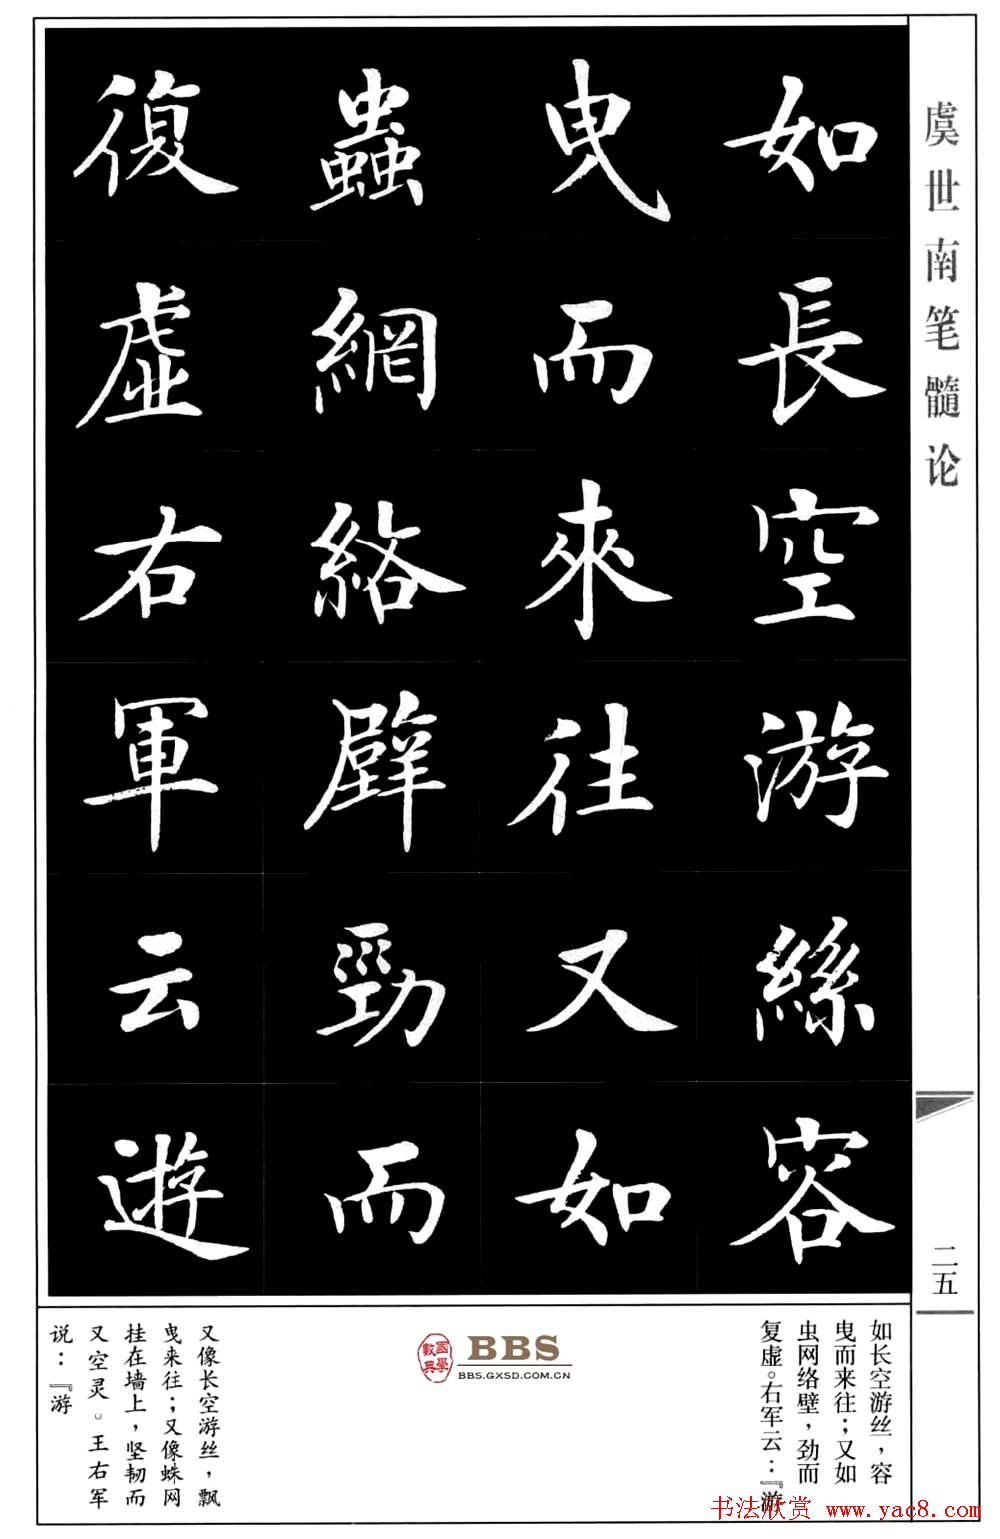 虞世南笔髓论
二五
如長空游絲容
曳而來往又如
蟲網絡壁勁而
復虛右軍云遊
如长空游丝，容
曳而来往；又如
虫网络壁，劲而
复虚。右军云：『游
又像长空游丝，飘
曳来往；又像蛛网
挂在墙上，坚韧而
又空灵。王右军
说：『游
國學數典
BBS
BBS.GXSD.COM.CN
书法欣赏 www.yac8.com